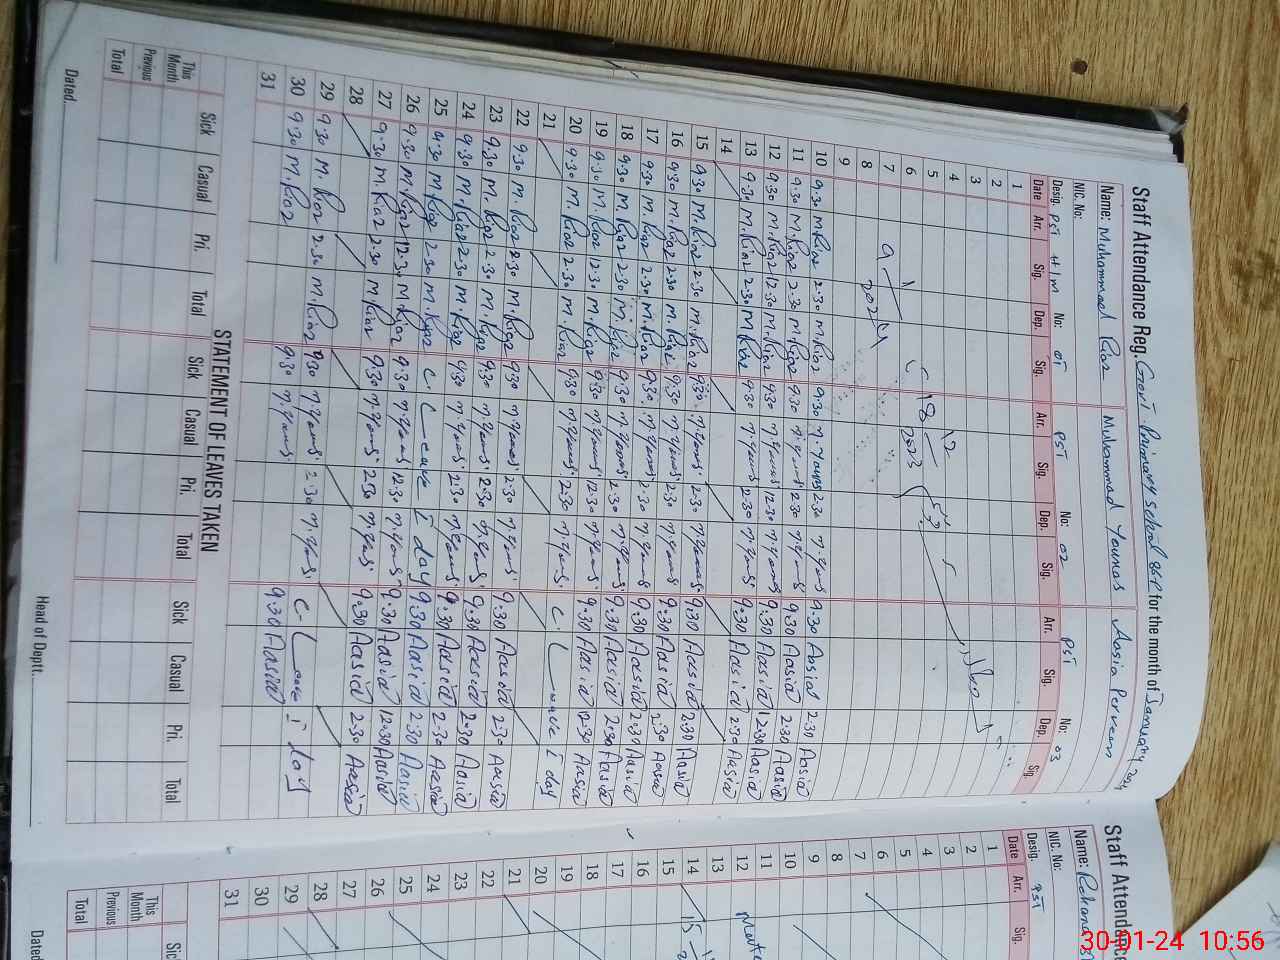 Staff Attendance Reg. Govt. Primary School for the month of January
Name: Muhammad Riaz Muhammad Younas Aasia Perveen
NIC. No:
Desig. PST H/M No: 01 PST No: 02 PST No: 03
Date Arr. Sig. Dep. Sig. Arr. Sig. Dep. Sig. Arr. Sig. Dep. Sig.
1
2
3
4
5
6
7
8
9
10 9.30 M.Riaz 2.30 M.Riaz 9.30 M.Younas 2.30 M.Younas 9.30 Aasia 2.30 Aasia
11 9.30 M.Riaz 2.30 M.Riaz 9.30 M.Younas 2.30 M.Younas 9.30 Aasia 2.30 Aasia
12 9.30 M.Riaz 12.30 M.Riaz 9.30 M.Younas 12.30 M.Younas 9.30 Aasia 12.30 Aasia
13 9.30 M.Riaz 2.30 M.Riaz 9.30 M.Younas 2.30 M.Younas 9.30 Aasia 2.30 Aasia
14
15 9.30 M.Riaz 2.30 M.Riaz 9.30 M.Younas 2.30 M.Younas 9.30 Aasia 2.30 Aasia
16 9.30 M.Riaz 2.30 M.Riaz 9.30 M.Younas 2.30 M.Younas 9.30 Aasia 2.30 Aasia
17 9.30 M.Riaz 2.30 M.Riaz 9.30 M.Younas 2.30 M.Younas 9.30 Aasia 2.30 Aasia
18 9.30 M.Riaz 2.30 M.Riaz 9.30 M.Younas 2.30 M.Younas 9.30 Aasia 2.30 Aasia
19 9.30 M.Riaz 12.30 M.Riaz 9.30 M.Younas 12.30 M.Younas 9.30 Aasia 12.30 Aasia
20 9.30 M.Riaz 2.30 M.Riaz 9.30 M.Younas 2.30 M.Younas C. Leave 1 day
21
22 9.30 M.Riaz 2.30 M.Riaz 9.30 M.Younas 2.30 M.Younas 9.30 Aasia 2.30 Aasia
23 9.30 M.Riaz 2.30 M.Riaz 9.30 M.Younas 2.30 M.Younas 9.30 Aasia 2.30 Aasia
24 9.30 M.Riaz 2.30 M.Riaz 9.30 M.Younas 2.30 M.Younas 9.30 Aasia 2.30 Aasia
25 9.30 M.Riaz 2.30 M.Riaz C. Leave 1 day 9.30 Aasia 2.30 Aasia
26 9.30 M.Riaz 12.30 M.Riaz 9.30 M.Younas 12.30 M.Younas 9.30 Aasia 12.30 Aasia
27 9.30 M.Riaz 2.30 M.Riaz 9.30 M.Younas 2.30 M.Younas 9.30 Aasia 2.30 Aasia
28
29 9.30 M.Riaz 2.30 M.Riaz 9.30 M.Younas 2.30 M.Younas C. Leave 1 day
30 9.30 M.Riaz 9.30 M.Younas 9.30 Aasia
31
STATEMENT OF LEAVES TAKEN
Sick Casual Pri. Total Sick Casual Pri. Total Sick Casual Pri. Total
This Month
Previous
Total
Dated. Head of Deptt.
Staff Attendance
Name:
NIC. No:
Desig. PST
Date Arr. Sig.
1
2
3
4
5
6
7
8
9
10
11
12
13
14
15
16
17
18
19
20
21
22
23
24
25
26
27
28
29
30
31
Sick
This Month
Previous
Total
Dated
30-01-24 10:56